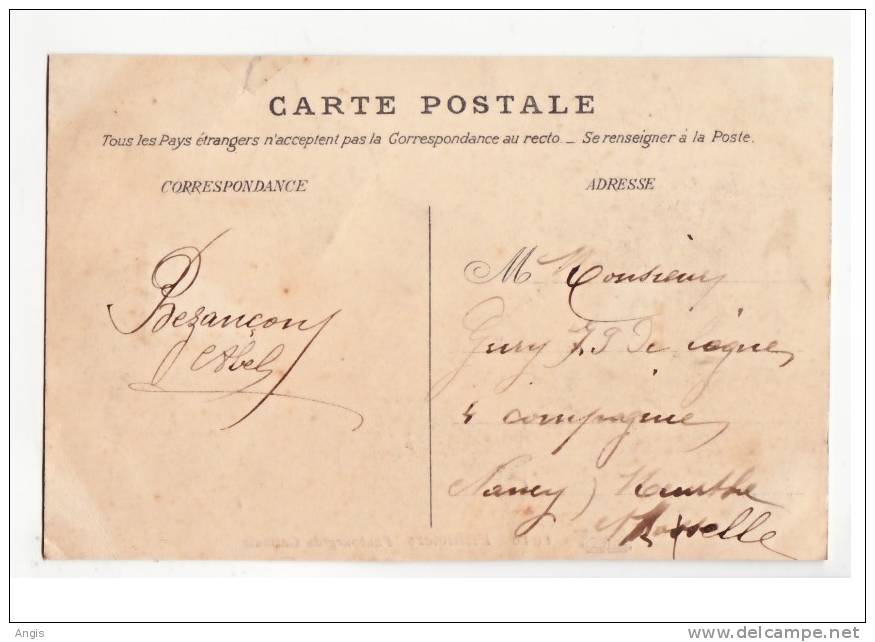 CARTE POSTALE
Tous les Pays étrangers n'acceptent pas la Correspondance au recto _ Se renseigner à la Poste.
CORRESPONDANCE
ADRESSE
Bezançon
Abel
M Monsieur
Gury De ligne
4 compagnie
Nancy) Meurthe
Moselle
Angis
www.delcampe.net